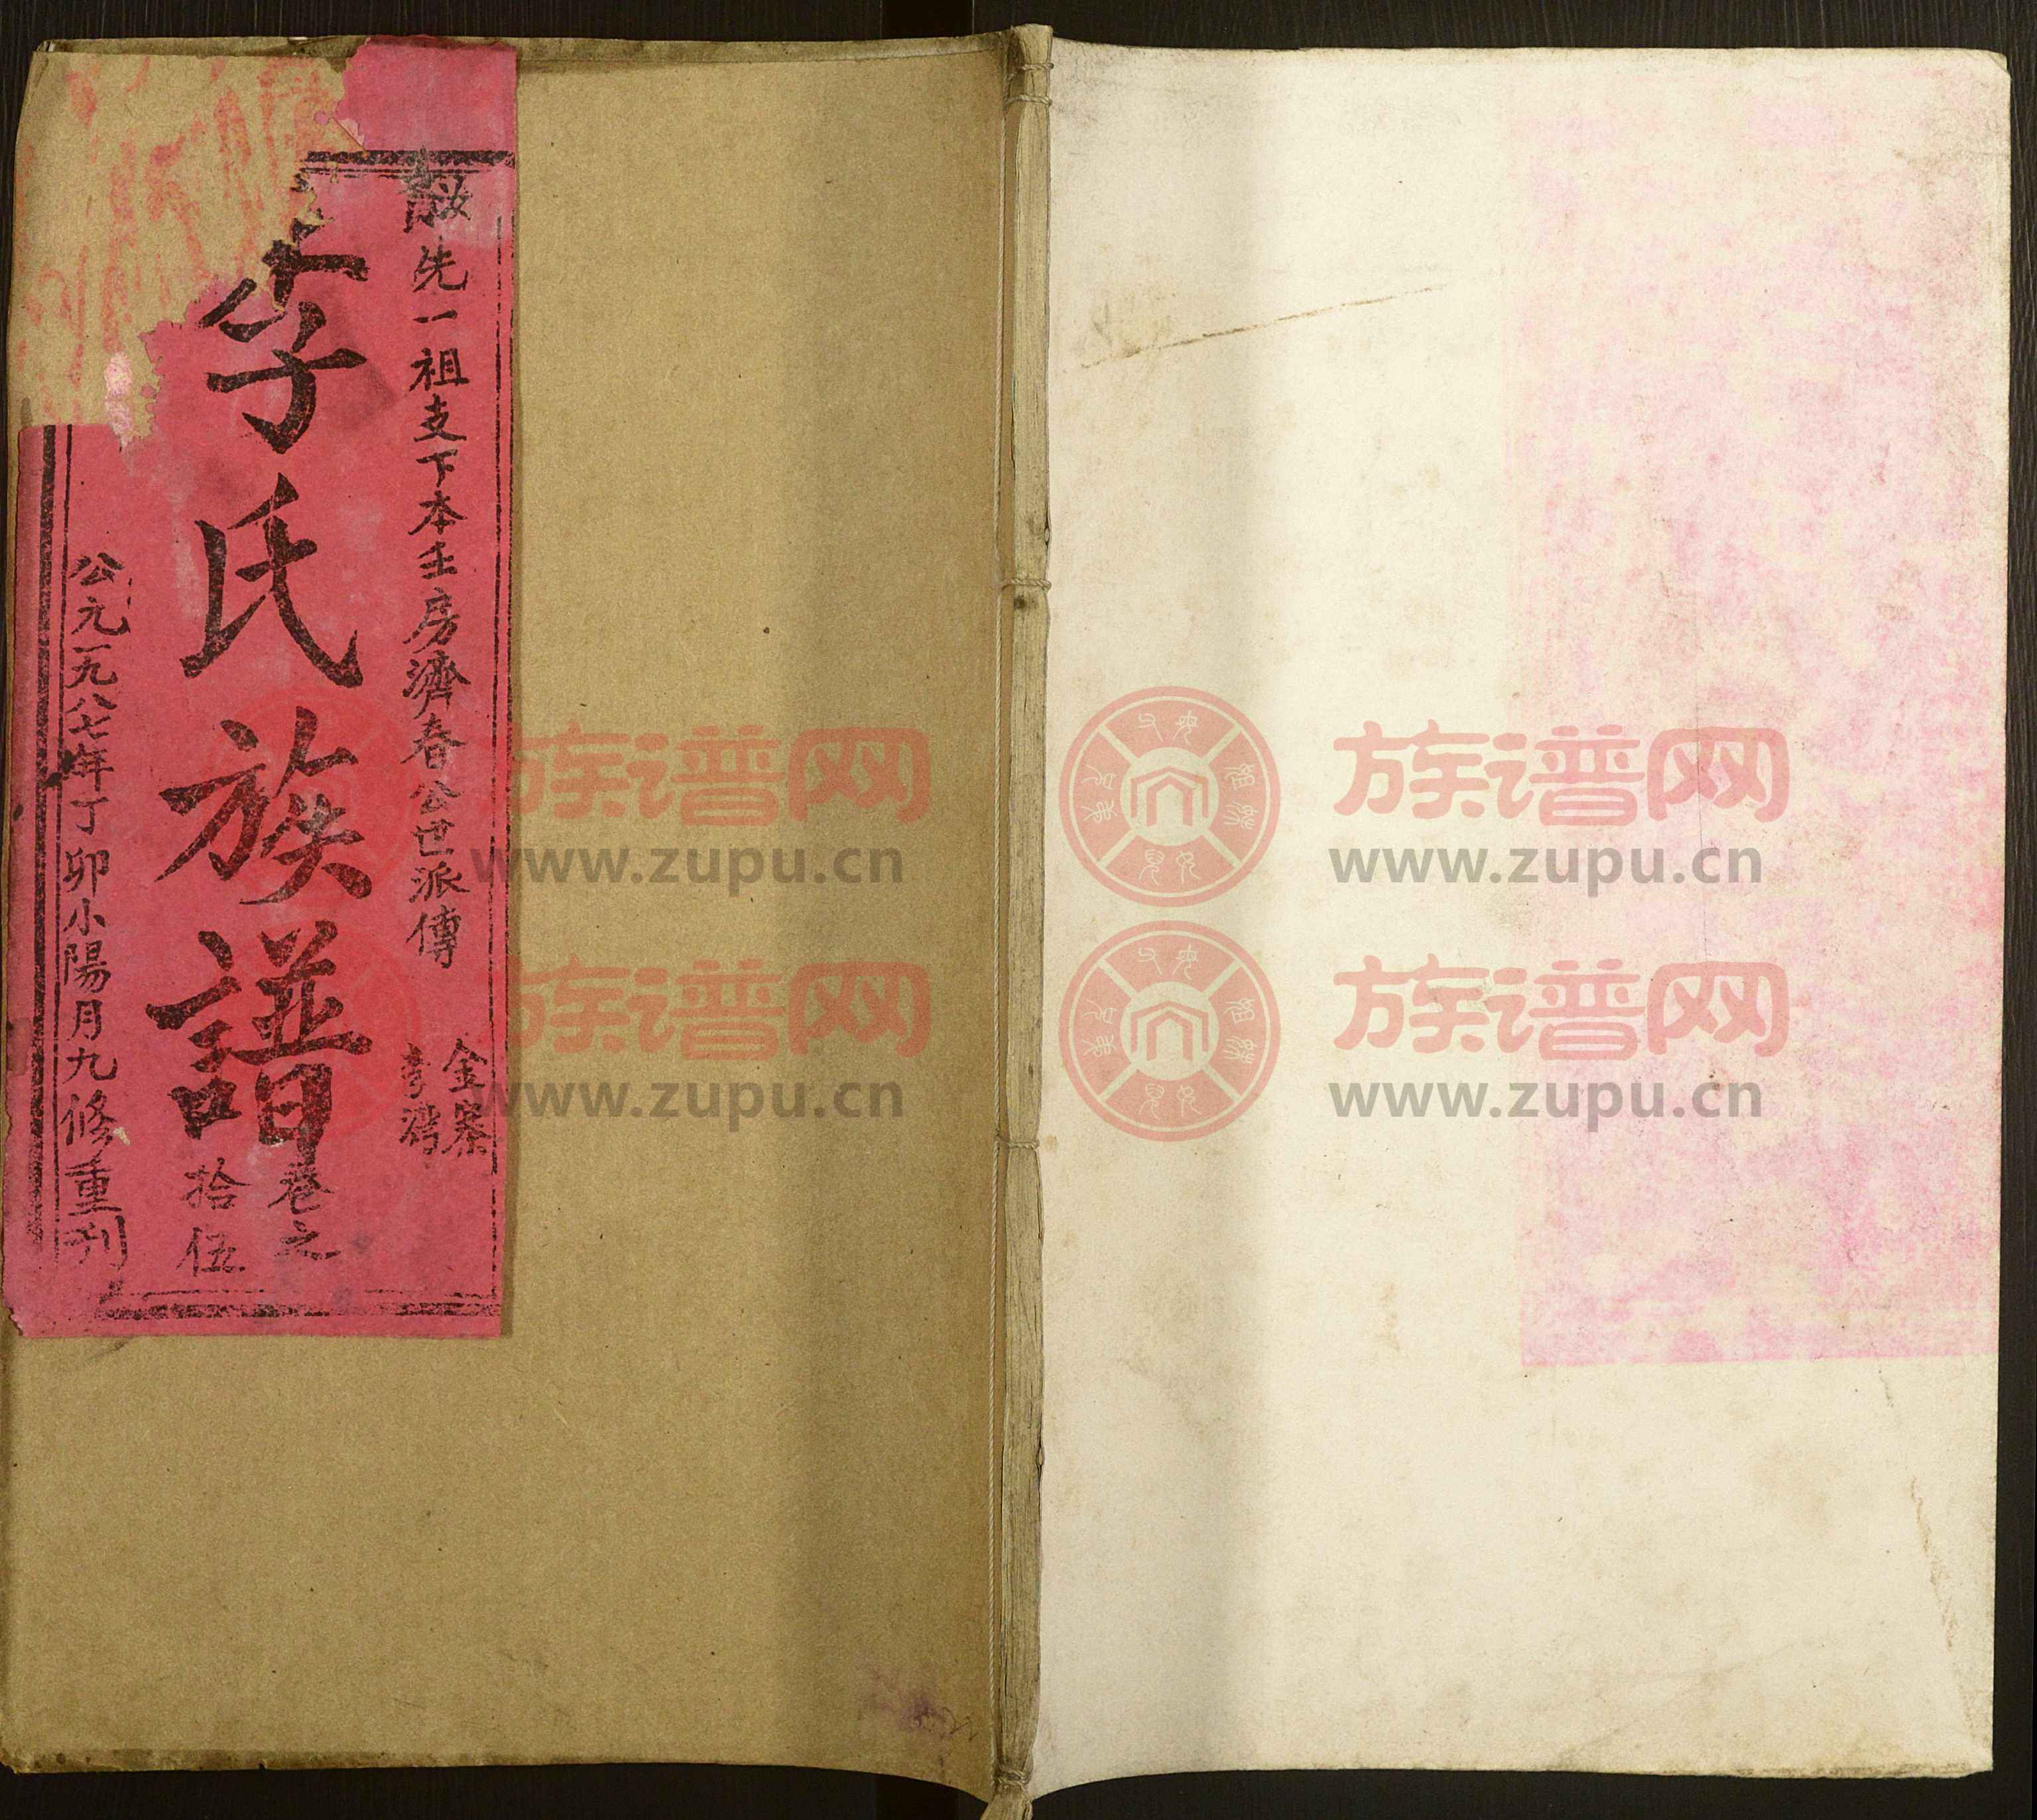 先一祖支下本壬房濟春公世派傳
金寨
李灣
李氏族譜
卷之
拾伍
公元一九八七年丁卯小陽月九修重刊
族谱网
www.zupu.cn
族谱网
www.zupu.cn
族谱网
www.zupu.cn
族谱网
www.zupu.cn